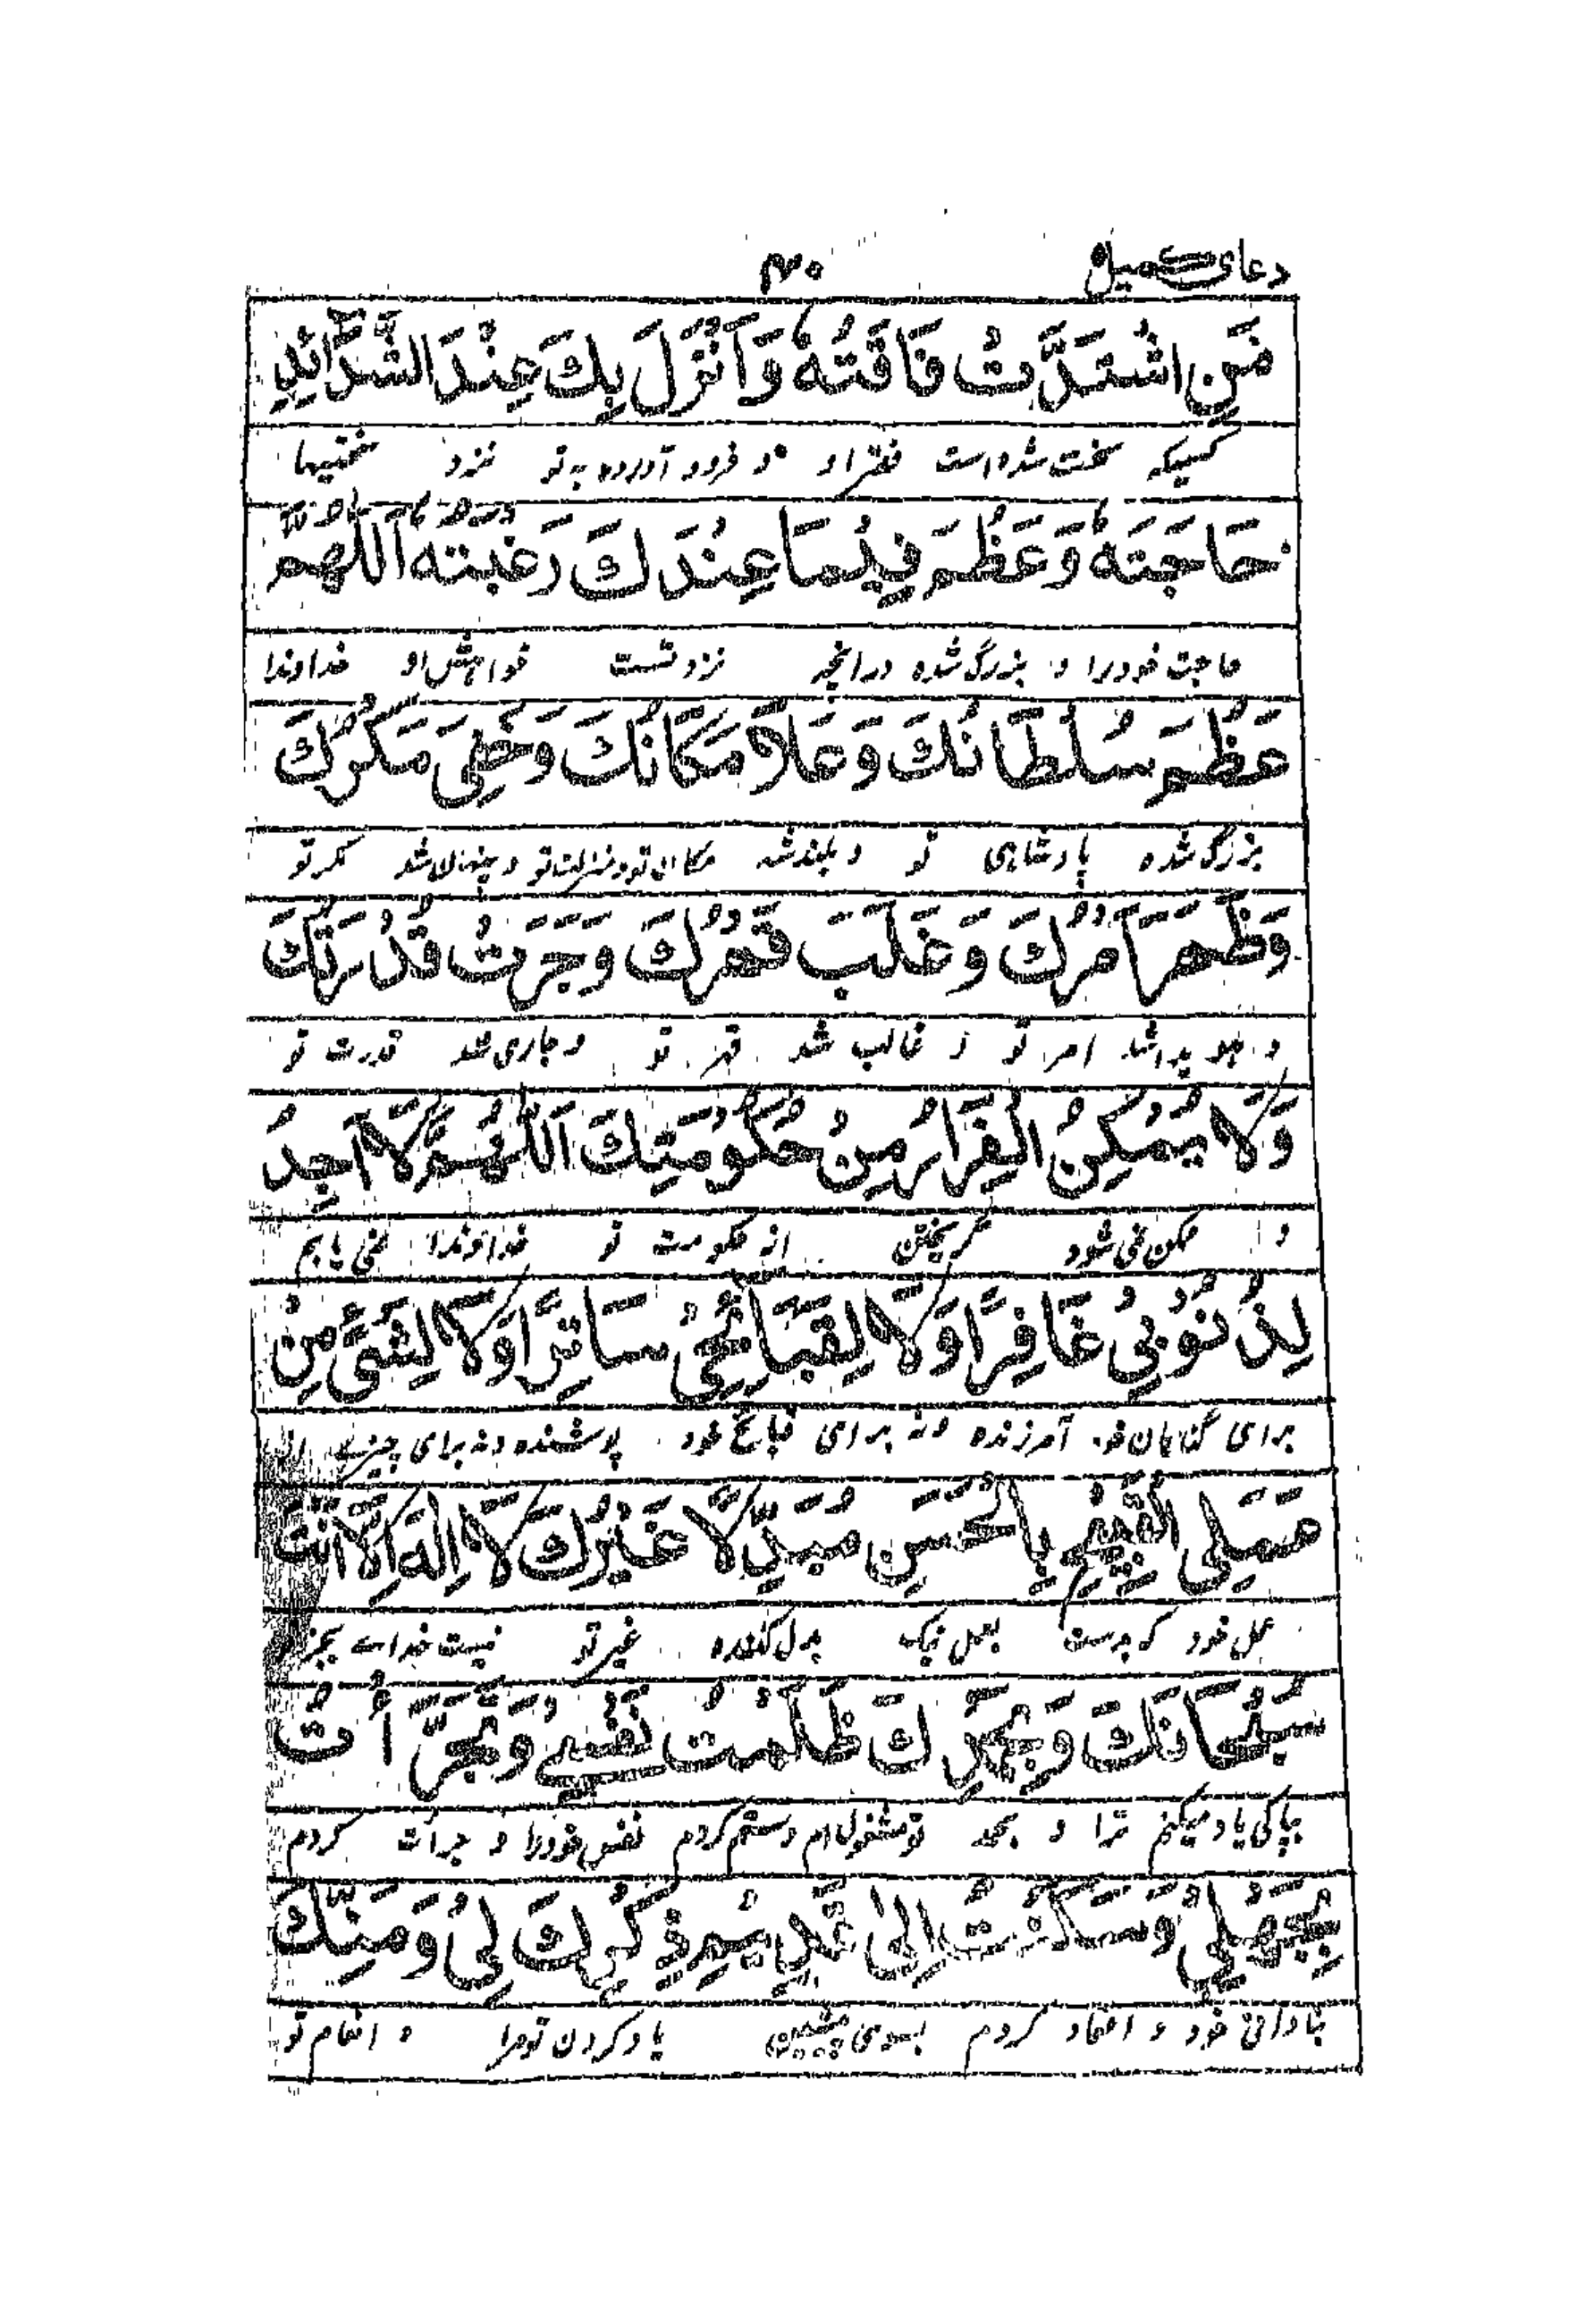 دعای کمیل ۳۰
مَنِ اشْتَدَّتْ فَاقَتُهُ وَاَنْزَلَ بِكَ عِنْدَ الشَّدَائِدِ
کسیکه سخت شده است فقر او و فرود آورده به تو نزد سختیها
حَاجَتَهُ وَعَظُمَ فِيْمَا عِنْدَكَ رَغْبَتُهُ اَللّٰهُمَّ
حاجت خود را و بزرگ شده در انچه نزد تست خواهش او خداوندا
عَظُمَ سُلْطَانُكَ وَعَلَا مَكَانُكَ وَخَفِیَ مَكْرُكَ
بزرگ شده پادشاهی تو و بلند شد مکان تو و منزلت تو و پنهان شد مکر تو
وَظَهَرَ اَمْرُكَ وَغَلَبَ قَهْرُكَ وَجَرَتْ قُدْرَتُكَ
و هویدا شد امر تو و غالب شد قهر تو و جاری شد قدرت تو
وَلَا يُمْكِنُ الْفِرَارُ مِنْ حُكُوْمَتِكَ اَللّٰهُمَّ لَا اَجِدُ
و ممکن نمی شود گریختن از حکومت تو خداوندا نمی یابم
لِذُنُوْبِیْ غَافِرًا وَلَا لِقَبَائِحِیْ سَاتِرًا وَلَا لِشَیْءٍ مِنْ
برای گناهان خود آمرزنده و نه برای قبایح خود پوشنده و نه برای چیزے از
عَمَلِی الْقَبِیْحِ بِالْحَسَنِ مُبَدِّلًا غَيْرَكَ لَا اِلٰهَ اِلَّا اَنْتَ
عمل خود که بد ست بعمل نیک بدل کننده غیر تو نیست خداے بجز
سُبْحَانَكَ وَبِحَمْدِكَ ظَلَمْتُ نَفْسِیْ وَتَجَرَّأْتُ
بپاکی یاد میکنم ترا و بحمد تو مشغول ام و ستم کردم نفس خود را و جرأت کردم
بِجَهْلِیْ وَسَكَنْتُ اِلٰی قَدِیْمِ ذِكْرِكَ لِیْ وَمَنِّكَ
بنادانی خود و اعتماد کردم بسوی یاد کردن تو مرا و انعام تو